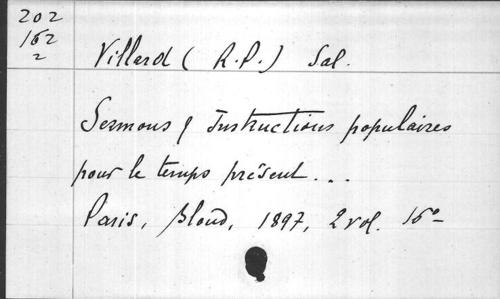 202
162
2
Villard (R.P.) Sal.
Sermons & Instructions populaires
pour le temps présent...
Paris, Bloud, 1897, 2 vol. 16°